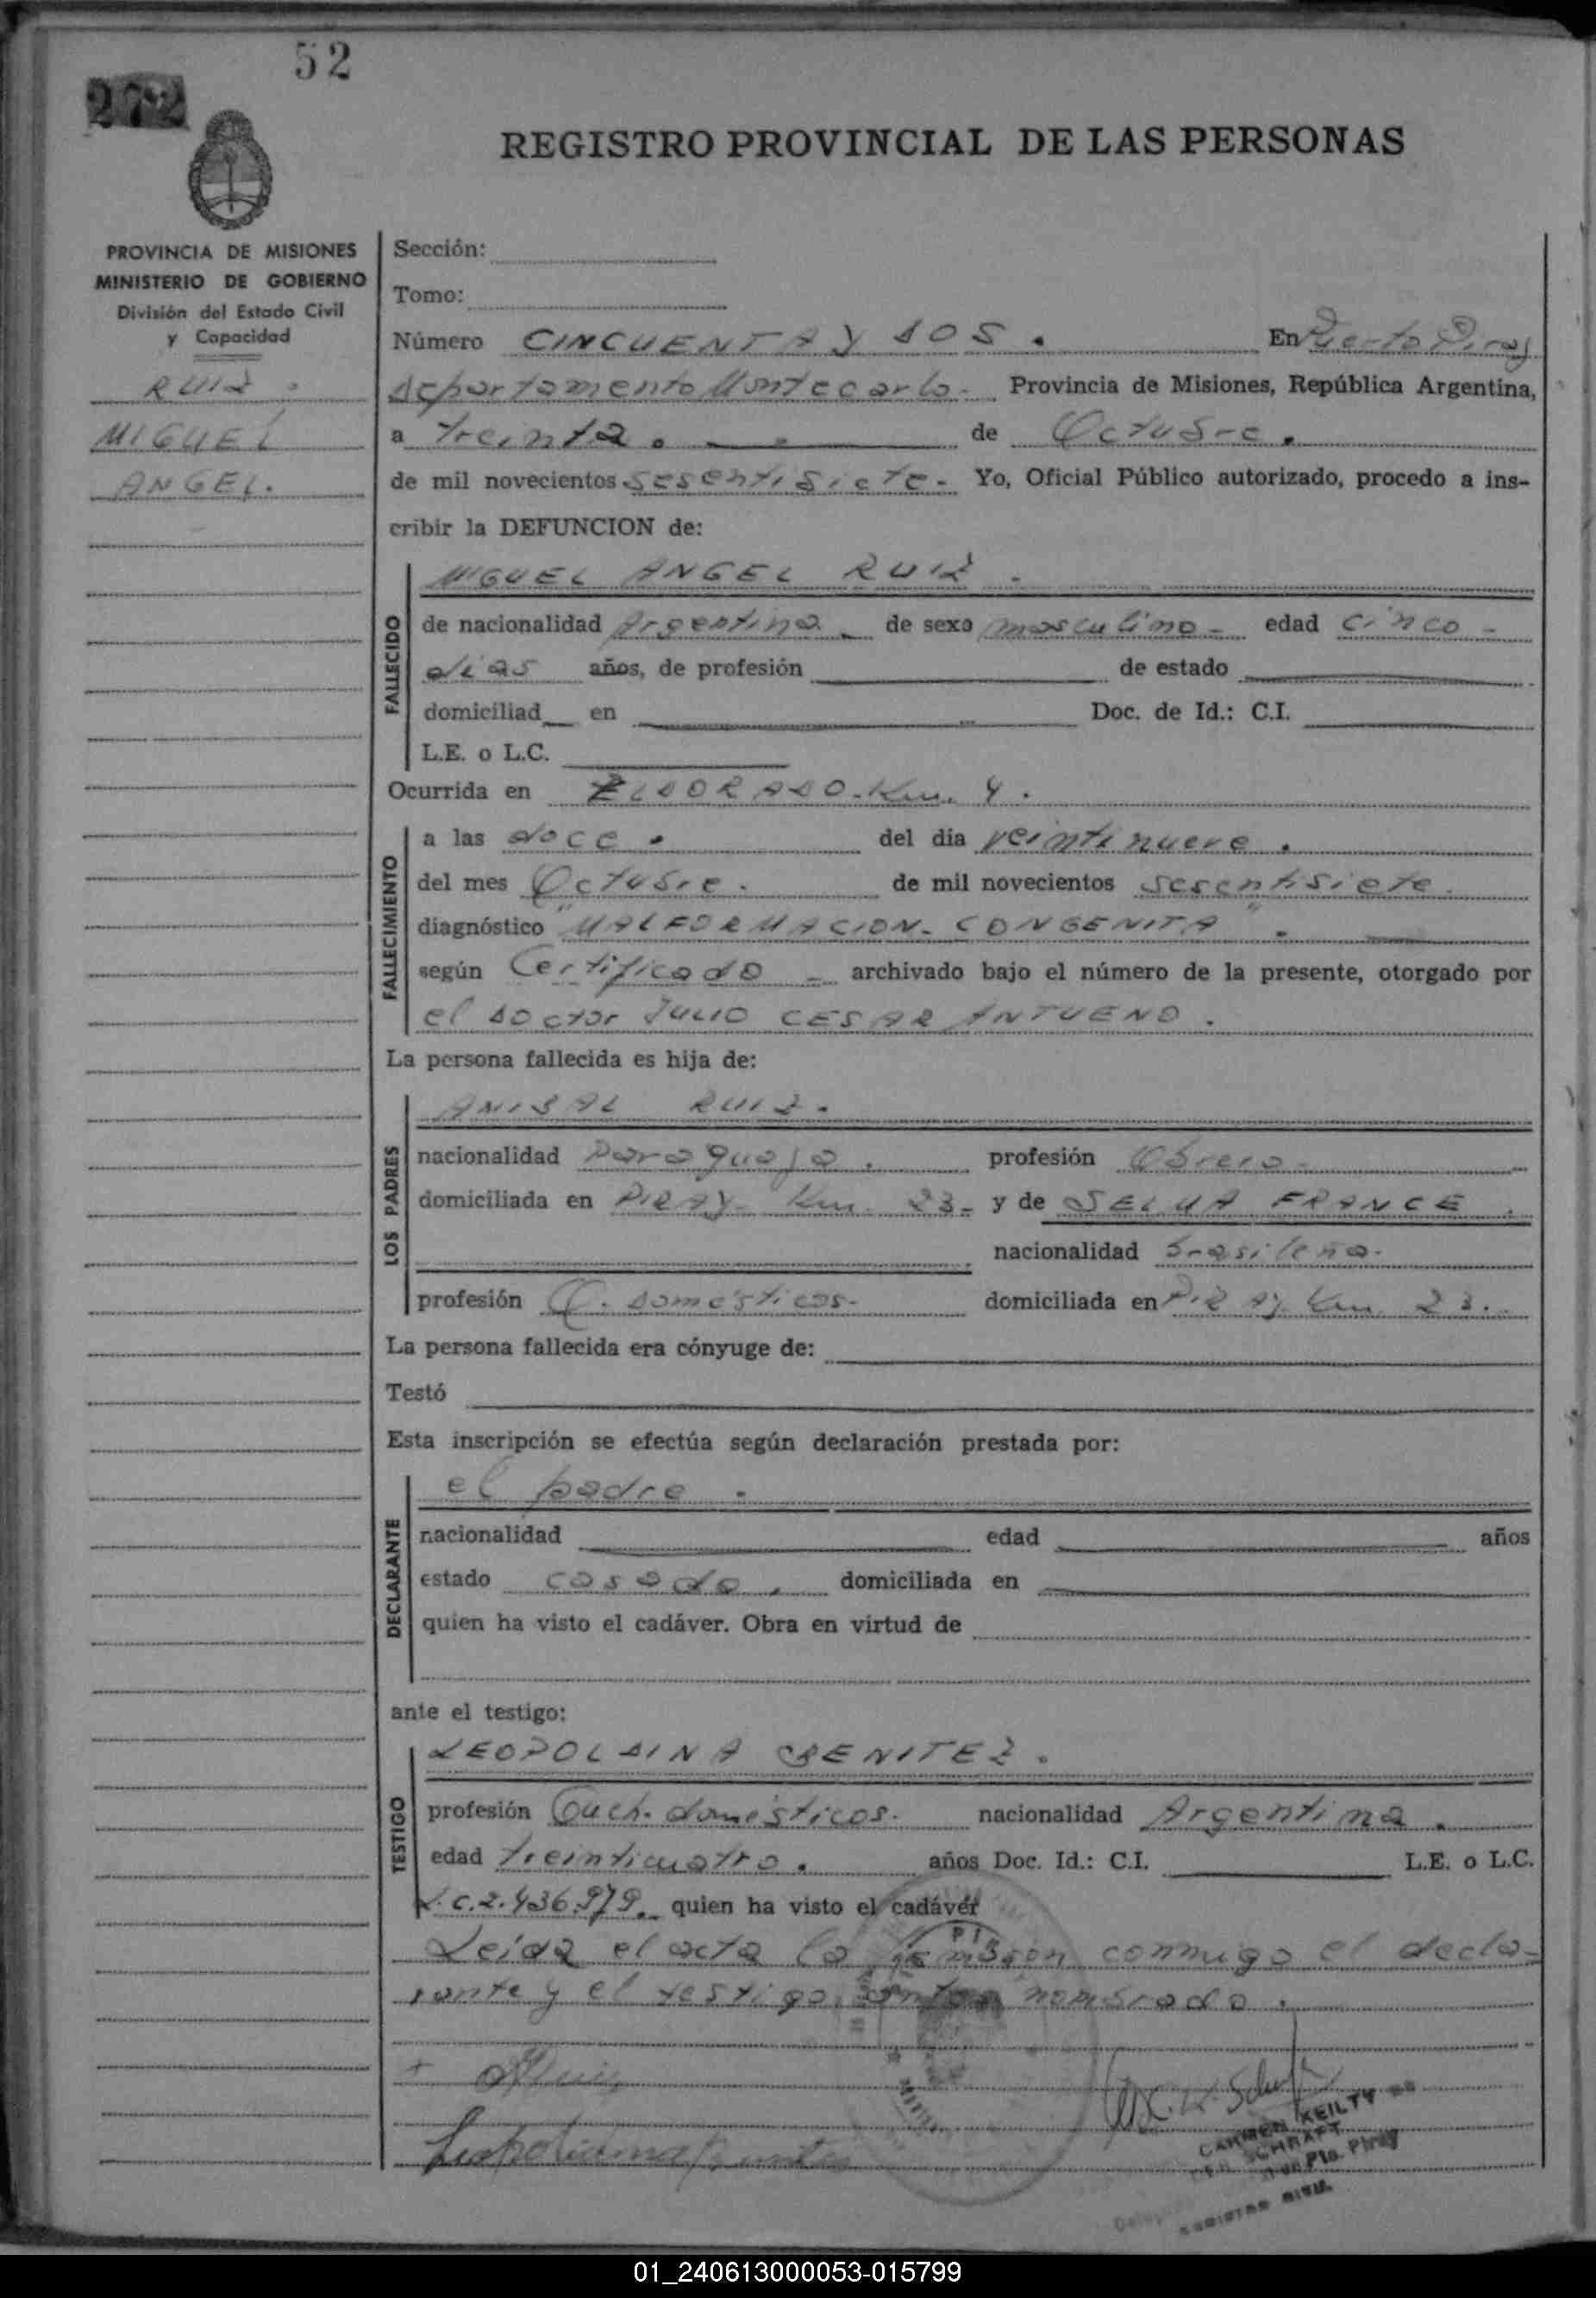 52
272
REGISTRO PROVINCIAL DE LAS PERSONAS
PROVINCIA DE MISIONES
MINISTERIO DE GOBIERNO
División del Estado Civil
y Capacidad
RUIZ.
MIGUEL
ANGEL.
Sección:
Tomo:
Número CINCUENTA Y DOS. En Puerto Piray
departamento Montecarlo. Provincia de Misiones, República Argentina,
a treinta. de Octubre.
de mil novecientos sesentisiete. Yo, Oficial Público autorizado, procedo a ins-
cribir la DEFUNCION de:
FALLECIDO
MIGUEL ANGEL RUIZ.
de nacionalidad Argentina de sexo masculino - edad cinco -
dias años, de profesión de estado
domiciliad en Doc. de Id.: C.I.
L.E. o L.C.
Ocurrida en ELDORADO-Km. 4.
FALLECIMIENTO
a las doce. del día veintinueve.
del mes Octubre. de mil novecientos sesentisiete.
diagnóstico "MALFORMACION-CONGENITA".
según Certificado - archivado bajo el número de la presente, otorgado por
el doctor JULIO CESAR ANTUENO.
La persona fallecida es hija de:
LOS PADRES
ANIBAL RUIZ.
nacionalidad paraguaya. profesión Obrero.
domiciliada en PIRAY- Km. 23- y de SELMA FRANCE.
nacionalidad brasileña.
profesión Q. domésticos- domiciliada en PIRAY Km. 23.
La persona fallecida era cónyuge de:
Testó
Esta inscripción se efectúa según declaración prestada por:
DECLARANTE
el padre.
nacionalidad edad años
estado casado, domiciliada en
quien ha visto el cadáver. Obra en virtud de
ante el testigo:
TESTIGO
LEOPOLDINA BENITEZ.
profesión Queh. domésticos. nacionalidad Argentina.
edad treinticuatro. años Doc. Id.: C.I. L.E. o L.C.
L.C.2.436.979. quien ha visto el cadáver
Leída el acta la firman conmigo el decla-
rante y el testigo antes nombrado.
ARuiz
CARMEN KEILTY DE
SCHRAFT
Pto. Piray
01_240613000053-015799